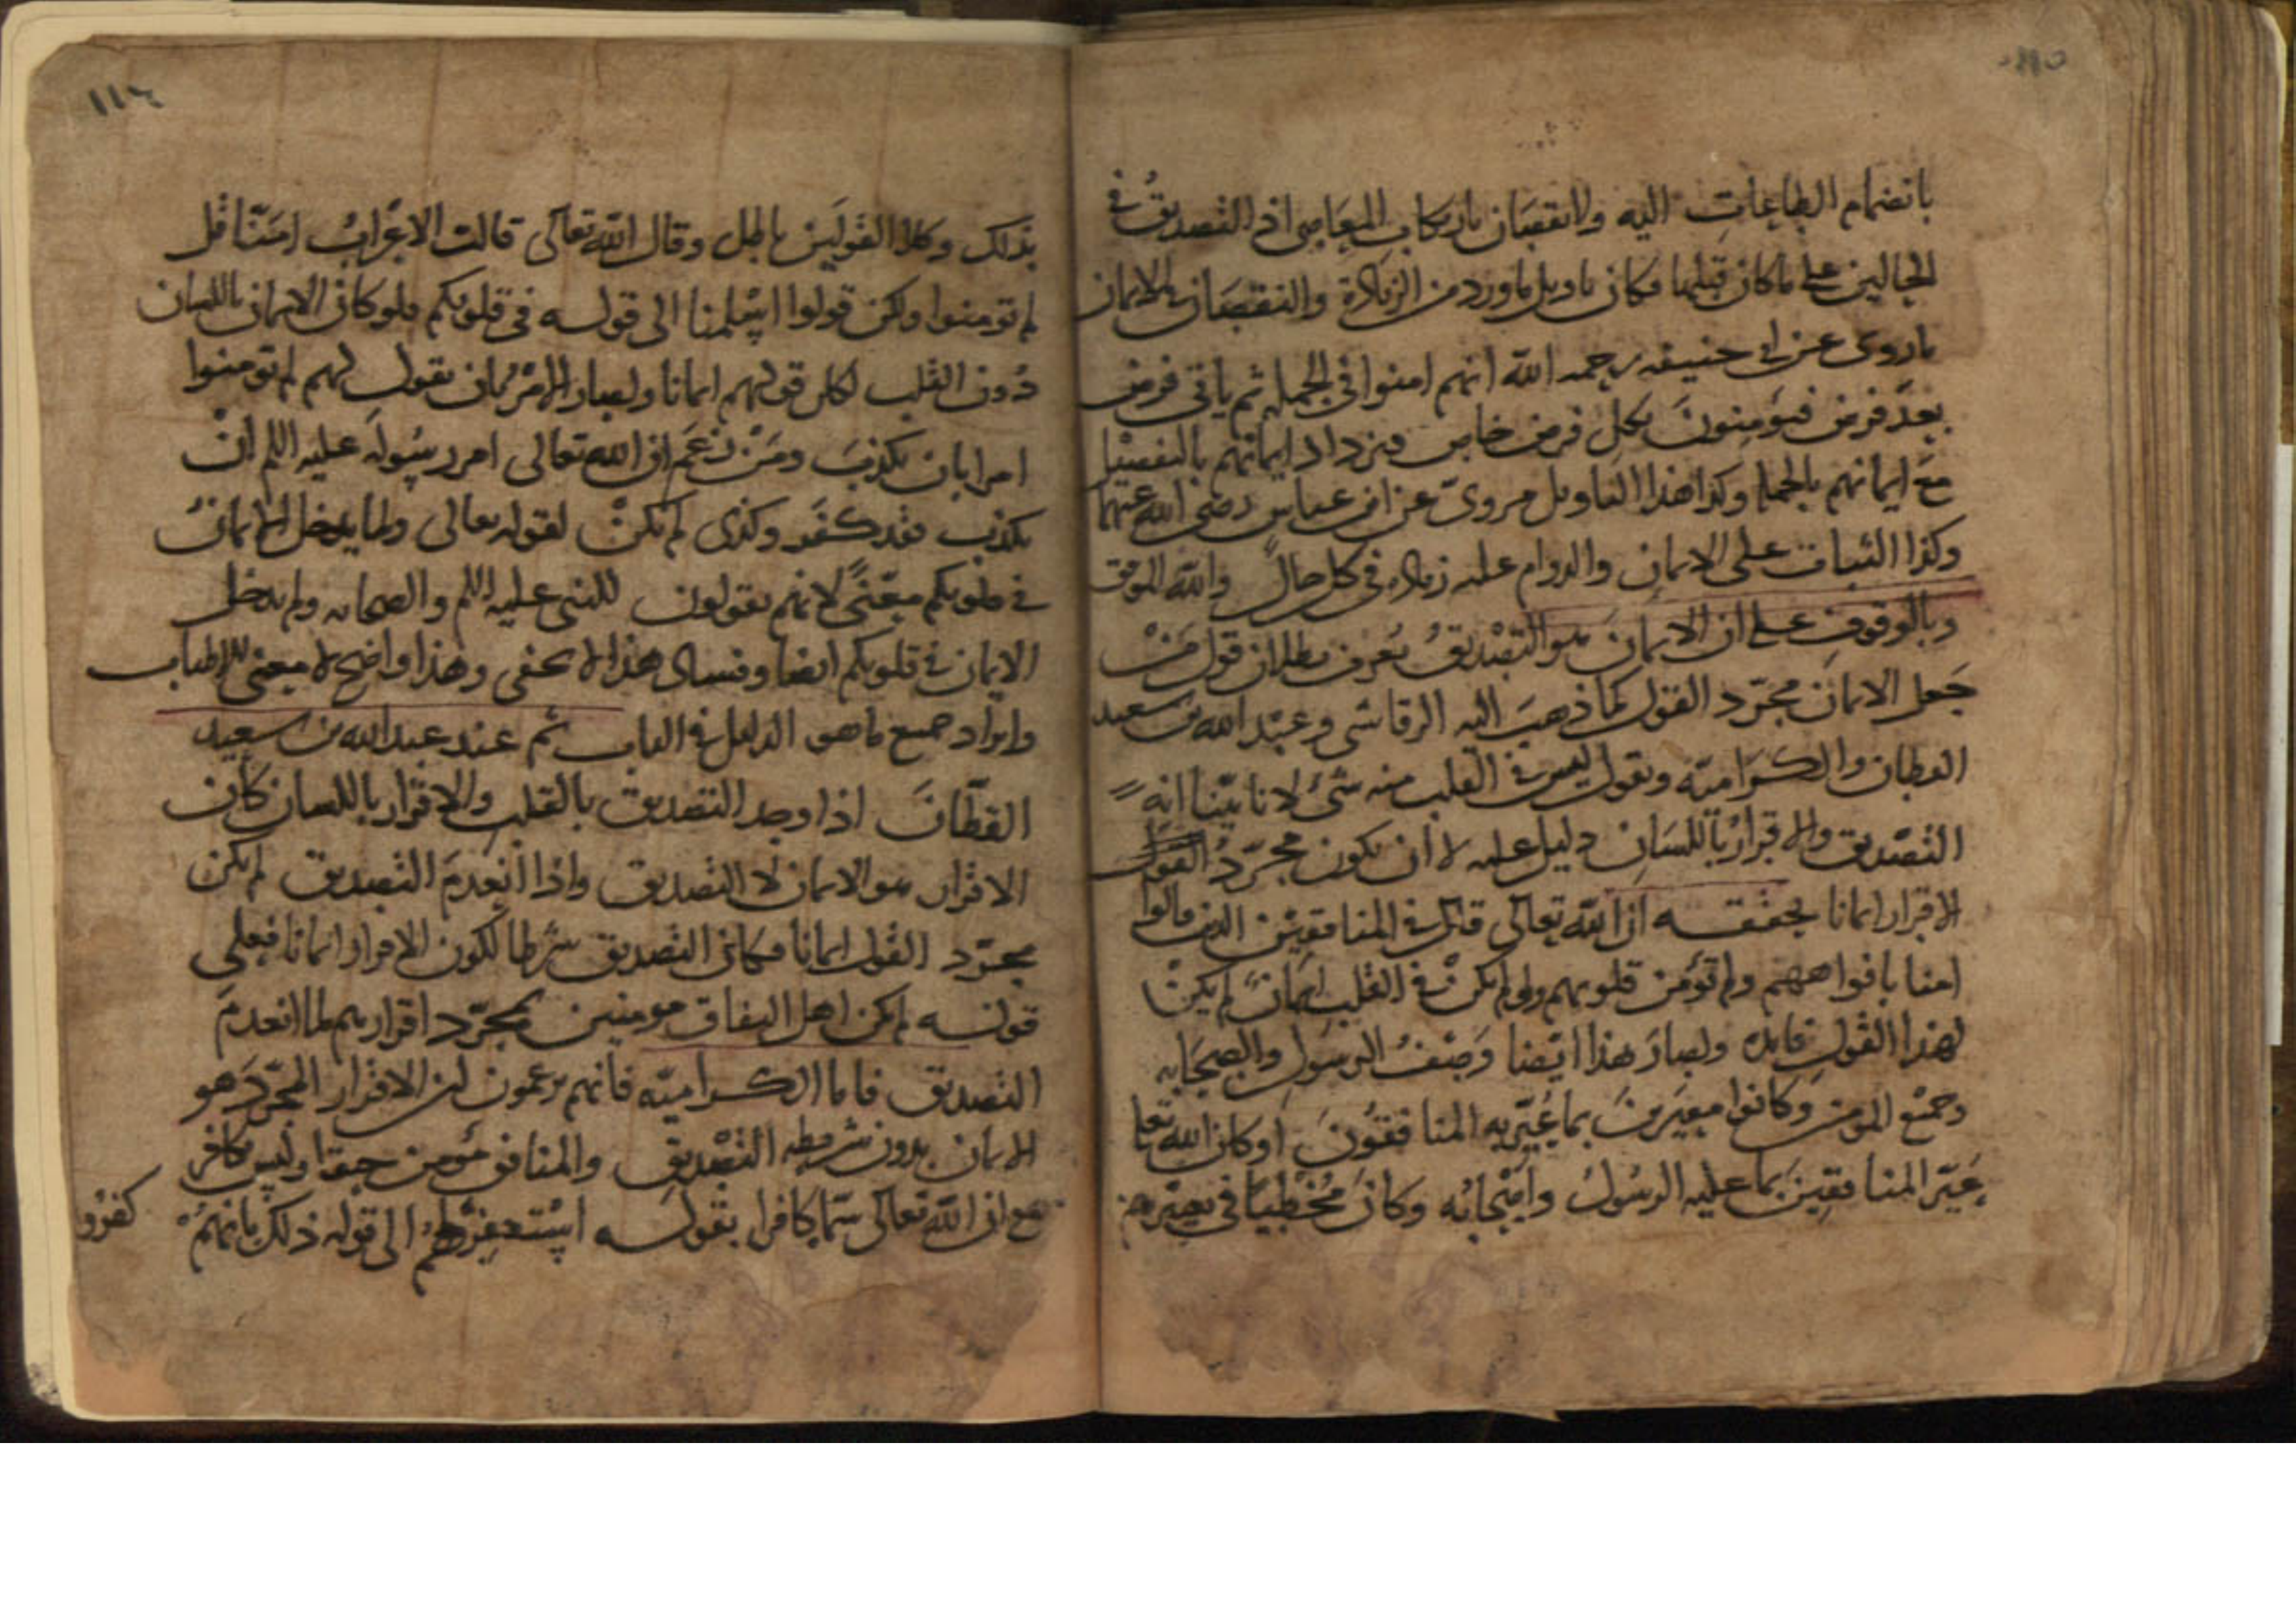 ١١٥
بانضمام الطاعات اليه ولا نقصان بارتكاب المعاصى اذ التصديق فى
الحالين على ما كان قبلهما فكان تاويل ما ورد من الزيادة والنقصان فى الايمان
ما روى عن ابى حنيفه رحمه الله انهم امنوا فى الجمله ثم ياتى فرض
بعد فرض فيؤمنون بكل فرض خاص فيزداد ايمانهم بالتفصيل
مع ايمانهم بالجمله وكذا هذا التاويل مروى عن ابن عباس رضى الله عنهما
وكذا الثبات على الايمان والدوام عليه زياده فى كل حال والله الموفق
وبالوقوف على ان الايمان هو التصديق يعرف بطلان قول من
جعل الايمان مجرد القول كما ذهب اليه الرقاشى وعبد الله بن سعيد
القطان والكرامية ونقول ليس فى القلب منه شئ لانا بينا انه
التصديق والاقرار باللسان دليل عليه لا ان يكون مجرد القول
الاقرار ايمانا يحققه ان الله تعالى قال فى المنافقين الذين قالوا
امنا بافواههم ولم تؤمن قلوبهم ولو لم يكن فى القلب ايمان لم يكن
لهذا القول فايده ولصار هذا ايضا وصف الرسول والصحابه
وجميع المومنين وكانوا معيرين بما عير به المنافقون اوكان الله تعالى
عير المنافقين بما عليه الرسول واصحابه وكان مخطيا فى تعييرهم
١١٦
بذلك وكلا القولين باطل وقال الله تعالى قالت الاعراب امنا قل
لم تومنوا ولكن قولوا اسلمنا الى قوله فى قلوبكم فلو كان الايمان باللسان
دون القلب لكان قولهم ايمانا ولصار الامر بان يقول لهم لم تومنوا
امرا بان يكذب ومن زعم ان الله تعالى امر رسوله عليه السلم ان
يكذب فقد كفر وكذى لم يكن لقوله تعالى ولما يدخل الايمان
فى قلوبكم معنى لانهم يقولون للنبى عليه السلم والصحابه ولم يدخل
الايمان فى قلوبكم ايضا وفساد هذا لا يخفى وهذا واضح لا معنى للاطناب
وايراد جميع ما هو الدليل فى الباب ثم عند عبد الله بن سعيد
القطان اذا وجد التصديق بالقلب والاقرار باللسان كان
الاقرار هو الايمان لا التصديق واذا انعدم التصديق لم يكن
مجرد القول ايمانا فكان التصديق شرطا لكون الاقرار ايمانا فعلى
قوله لم يكن اهل النفاق مومنين بمجرد اقرارهم لما انعدم
التصديق فاما الكرامية فانهم يزعمون ان الاقرار المجرد هو
الايمان بدون شريطه التصديق والمنافق مؤمن حقا وليس بكافر
مع ان الله تعالى سماه كافرا بقوله استغفر لهم الى قوله ذلك بانهم
كفروا